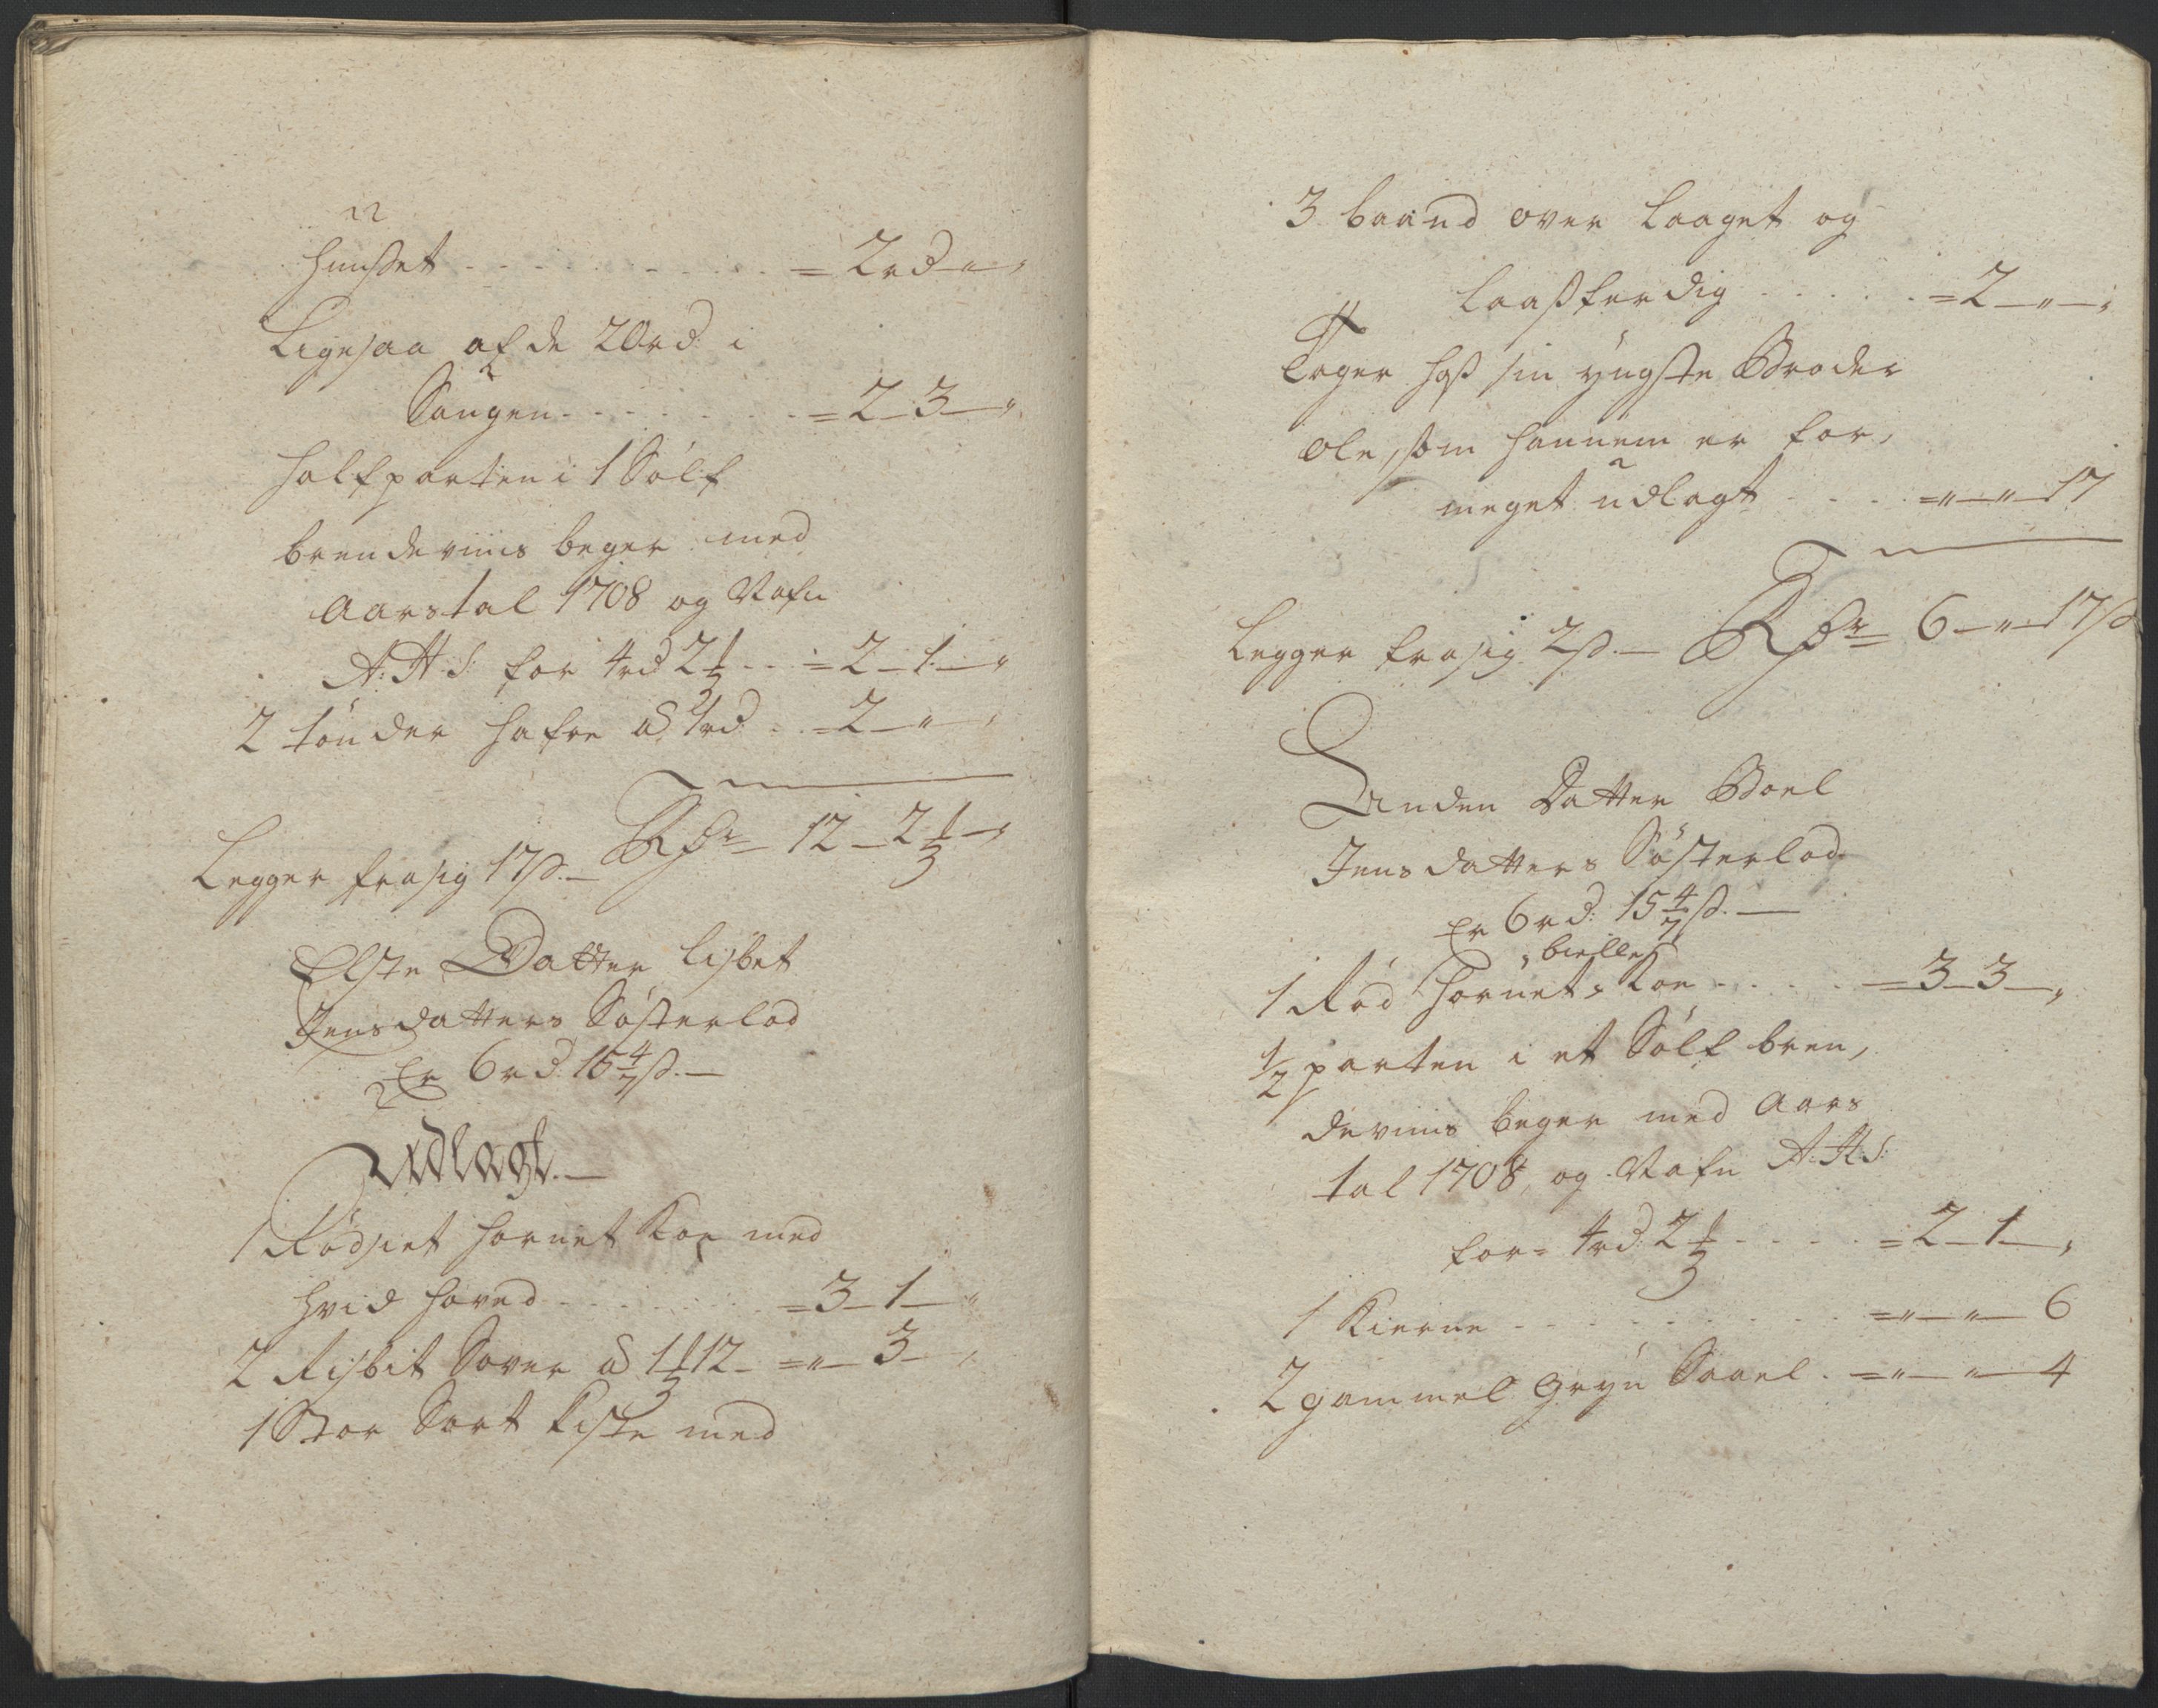 huuset - - - - - = 2rd - " - "
Ligesaa af de 20rd i
Saugen - - - - = 2 - 3 - "
halfparten i 1 Sølf
brendeviins beger med
Aarstal 1708 og Nafn
A: H S: for 4rd 2½ - - = 2 - 1 - "
2 tønder hafre a 1rd - - = 2 - " - "
Legger fra sig 17s. - 12 - 2½ - "
Elste Datter Lisbet
Jensdatters Søsterlod
Er 6rd 15 4/7 s. -
Udlagt. -
1 Rødsiet hornet Koe med
hvid hoved - - - - = 3 - 1 - "
2 Risbit Sover a 1½ 12 - = " - 3 - "
1 Stor Sort Kiste med
3 baand over laaget og
laasferdig - - - - = 2 - " - "
Tager hoss sin yngste Broder
Ole, som hannem er for,
meget udlagt - - - = " - " - 17
Legger fra sig 2s. - 6 - " - 17s
Anden Datter Boel
Jensdatters Søsterlod
Er 6rd: 15 4/7 s. -
, bielle
1 Rød hornet, Koe - - - - = 3 - 3 - "
½ parten i et Sølf bren,
deviins beger med Aars
tal 1708, og Nafn A: H: S:
for = 4rd: 2½ - - - - = 2 - 1 - "
1 Kierne - - - - - = " - " - 6
2 gammel gryn Saael . = " - " - 4